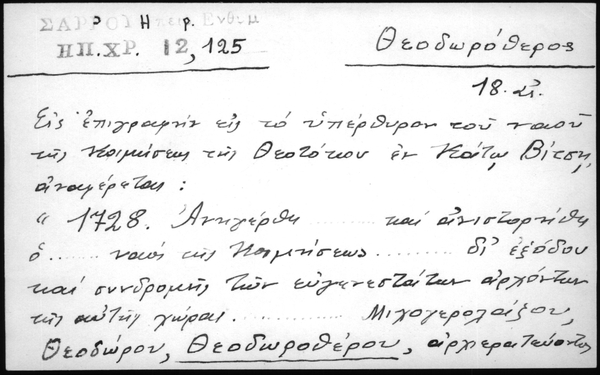 ΣΑΡΡΟΥ Ηπειρ. Ενθυμ
ΗΠ.ΧΡ. 12, 125
Θεοδωρόθερος
18. αἰ.
Εἰς ἐπιγραφὴν εἰς τὸ ὑπέρθυρον τοῦ ναοῦ
τῆς Κοιμήσεως τῆς Θεοτόκου ἐν Κάτω Βίτσῃ,
ἀναφέρεται:
" 1728. Ἀνηγέρθη ........ καί ἀνιστορήθη
ὁ ...... ναός τῆς Κοιμήσεως ........ δι' ἐξόδου
καί συνδρομῆς τῶν εὐγενεστάτων ἀρχόντων
τῆς αὐτῆς χώρας ............
Θεοδώρου, Θεοδωροθέρου, ἀρχιερατεύοντος